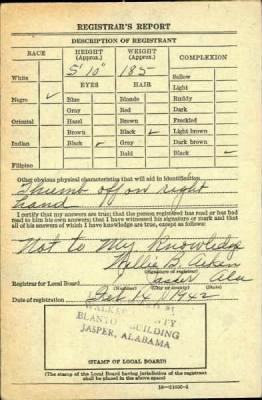 REGISTRAR'S REPORT
DESCRIPTION OF REGISTRANT
RACE
HEIGHT (Approx.)
WEIGHT (Approx.)
COMPLEXION
5' 10"
185
White
Sallow
EYES
HAIR
Light
Negro ✓
Blue
Blonde
Ruddy
Gray
Red
Dark
Oriental
Hazel
Brown
Freckled
Brown
Black ✓
Light brown
Indian
Black ✓
Gray
Dark brown
Bald
Black ✓
Filipino
Other obvious physical characteristics that will aid in identification
Thumb off on right
hand
I certify that my answers are true; that the person registered has read or has had
read to him his own answers; that I have witnessed his signature or mark and that
all of his answers of which I have knowledge are true, except as follows:
Not to My Knowledge
B.
(Signature of registrar)
Registrar for Local Board
Jasper Ala
(Number) (City or county) (State)
Date of registration Feb 14, 1942
WALKER
BUILDING
JASPER, ALABAMA
(STAMP OF LOCAL BOARD)
(The stamp of the Local Board having jurisdiction of the registrant
shall be placed in the above space)